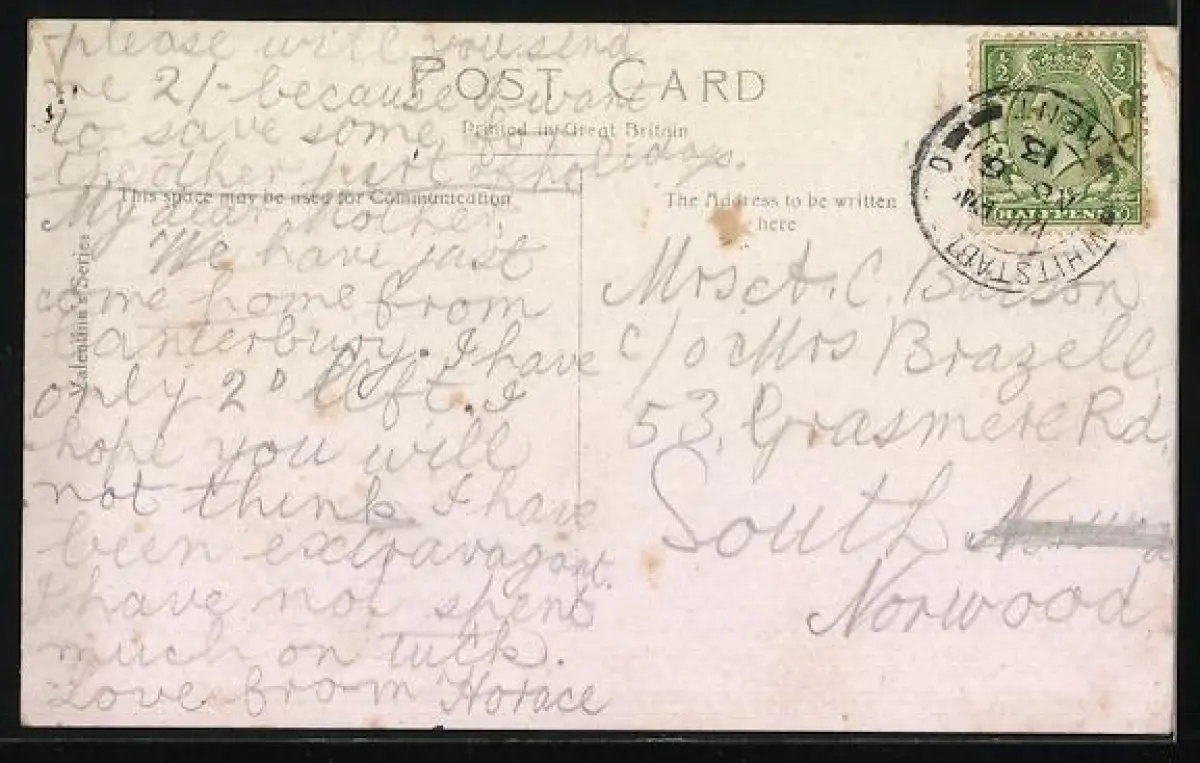 please will you send
me 2/- because I want
to save some for
the other part of holidays.
POST CARD
Printed in Great Britain
This space may be used for Communication
The Address to be written
here
Valentine's Series
My dear Mother,
We have just
come home from
Canterbury. I have
only 2D left. I
hope you will
not think I have
been extravagant.
I have not spent
much on tuck.
Love from Horace
Mrs A. C.
c/o Mrs Brazell
53, Grasmere Rd.
South
Norwood
1/2 1/2
HALFPENNY
WHITSTABLE
13